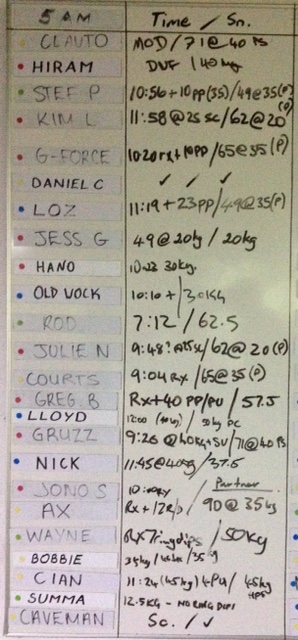 5 AM Time / Sn.
CLAUTO MOD / 71@40 PS
HIRAM DUF / 40kg
STEF P 10:56+10PP(35)/49@35(P)
KIM L 11:58@25 SC/62@20 (P)
G-FORCE 10:20rx+10PP/65@35 (P)
DANIEL C ✓ ✓ ✓
LOZ 11:19+23PP/49@35(P)
JESS G 49@20kg / 20kg
HANO 30kg.
OLD VOCK 10:10+/30KG
ROD 7:12 / 62.5
JULIE N 9:48? /62@ 20 (P)
COURTS 9:04 Rx /65@35 (P)
GREG. B Rx+40 PP/PU / 57.5
LLOYD 12:00 (40kg) / 50kg PC
GRUZZ 9:26 @40KG+SU/71@40 PS
NICK 11:45@40kg/37.5
JONO S Partner
AX Rx + /90@35kg
WAYNE Rx7ringdips/50Kg
BOBBIE 35kg /
CIAN 11:24(45kg)4PU/45kg
SUMMA 12.5KG - NO RING DIPS
CAVEMAN Sc. / ✓